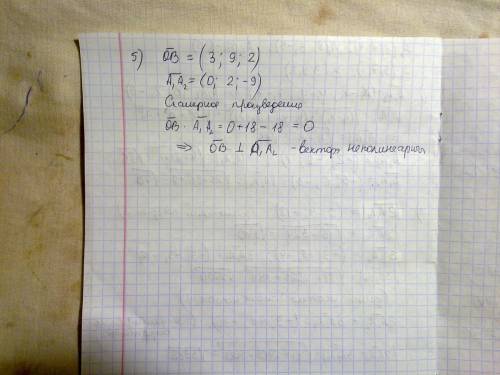 5) OB̅ = (3; 9; 2)
A̅₁A̅₂ = (0; 2; -9)
Скалярное произведение
OB̅ · A̅₁A̅₂ = 0+18-18 = 0
⇒ OB̅ ⊥ A̅₁A̅₂ - вектора неколинеарны